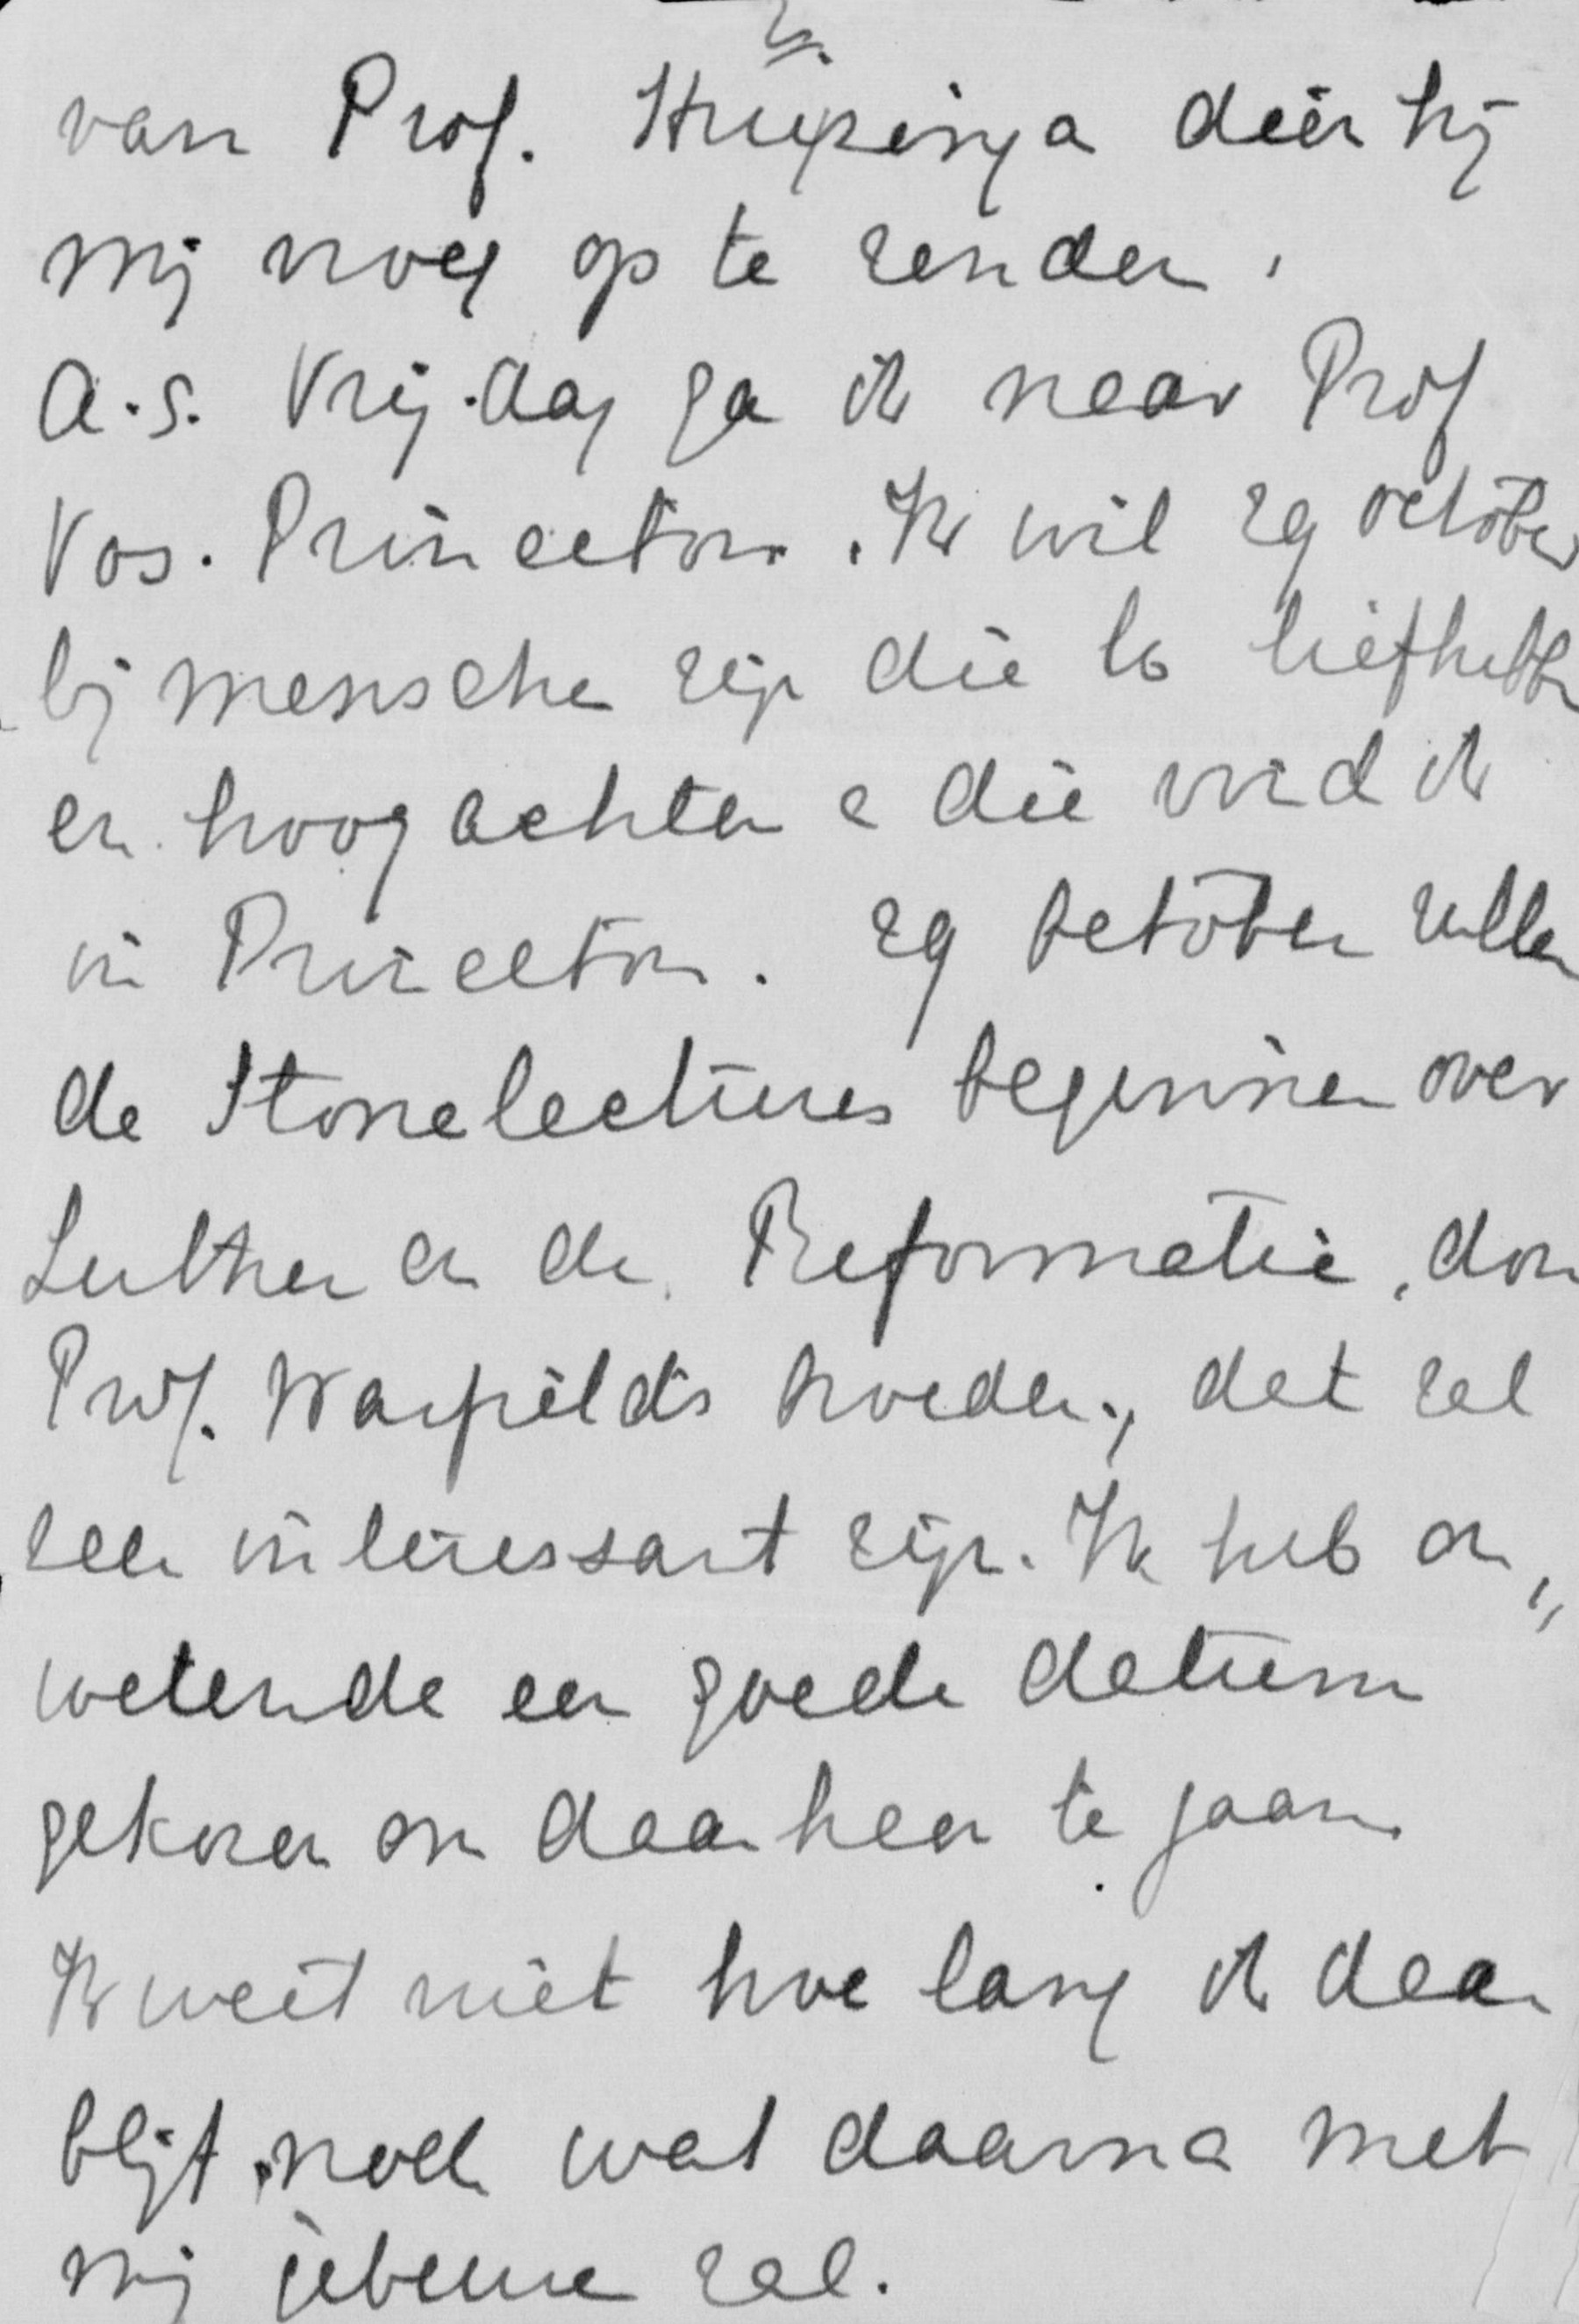 van Prof. Huizinga dien hij
mij nog op te zenden.
a.s. Vrijdag ga ik naar Prof
Vos. Princeton. Ik wil 29 october
bij menschen zijn die U liefhebben
en hoogachten & die vind ik
in Princeton. 29 october zullen
de Stonelectures beginnen over
Luther en de Reformatie, door
Prof. Warfield's broeder, dat zal
zeer interessant zijn. Ik heb on„
wetende een goede datum
gekozen om daarheen te gaan.
Ik weet niet hoe lang ik daar
blijf noch wat daarna met
mij gebeuren zal.